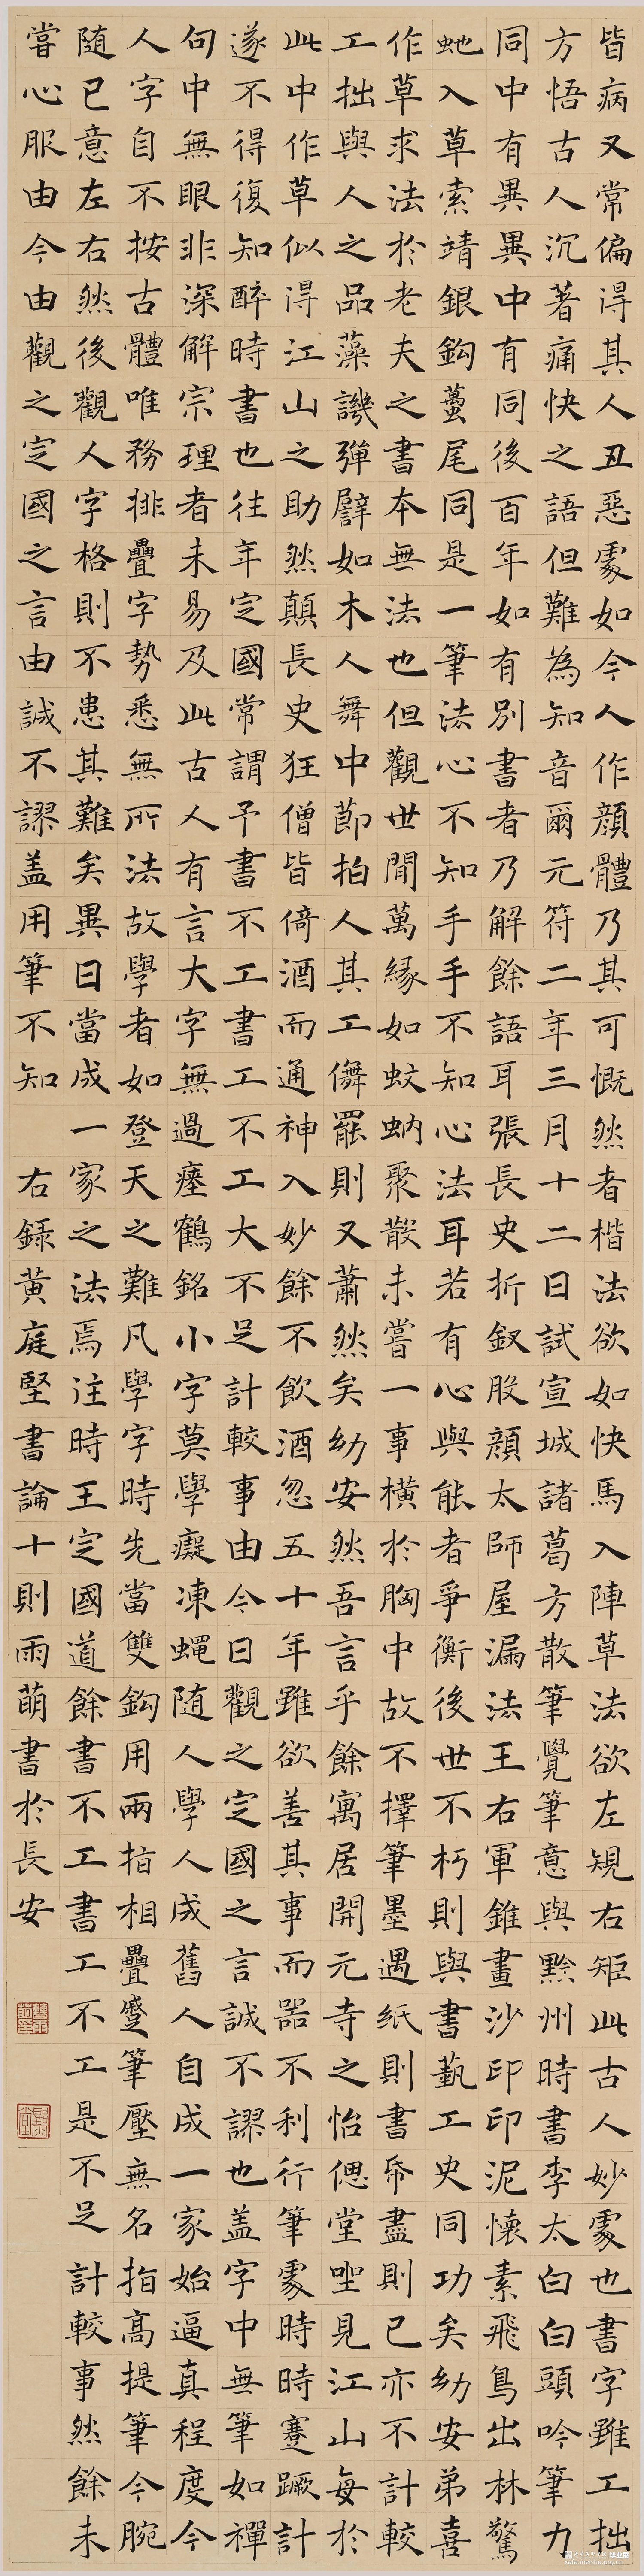 皆病又常偏得其人丑惡處如今人作顏體乃其可慨然者楷法欲如快馬入陣草法欲左規右矩此古人妙處也書字雖工拙
方悟古人沉著痛快之語但難為知音爾元符二年三月十二日試宣城諸葛方散筆覺筆意與黔州時書李太白白頭吟筆力
同中有異異中有同後百年如有別書者乃解餘語耳張長史折釵股顏太師屋漏法王右軍錐畫沙印印泥懷素飛鳥出林驚
虵入草索靖銀鈎蠆尾同是一筆法心不知手手不知心法耳若有心與能者爭衡後世不朽則與書藝工史同功矣幼安弟喜
作草求法於老夫之書本無法也但觀世間萬緣如蚊蚋聚散未嘗一事橫於胸中故不擇筆墨遇紙則書帋盡則已亦不計較
工拙與人之品藻譏彈譬如木人舞中節拍人其工儛罷則又蕭然矣幼安然吾言乎餘寓居開元寺之怡偲堂坐見江山每於
此中作草似得江山之助然顛長史狂僧皆倚酒而通神入妙餘不飲酒忽五十年雖欲善其事而器不利行筆處時時蹇蹶計
遂不得復知醉時書也往年定國常謂予書不工書工不工大不足計較事由今日觀之定國之言誠不謬也盖字中無筆如禪
句中無眼非深解宗理者未易及此古人有言大字無過瘞鶴銘小字莫學癡凍蝿隨人學人成舊人自成一家始逼真程度今
人字自不按古體唯務排疊字勢悉無所法故學者如登天之難凡學字時先當雙鈎用兩指相疊蹙筆壓無名指高提筆今腕
隨已意左右然後觀人字格則不患其難矣異日當成一家之法焉注時王定國道餘書不工書工不工是不足計較事然餘未
嘗心服由今由觀之定國之言由誠不謬盖用筆不知 右録黃庭堅書論十則雨萌書於長安